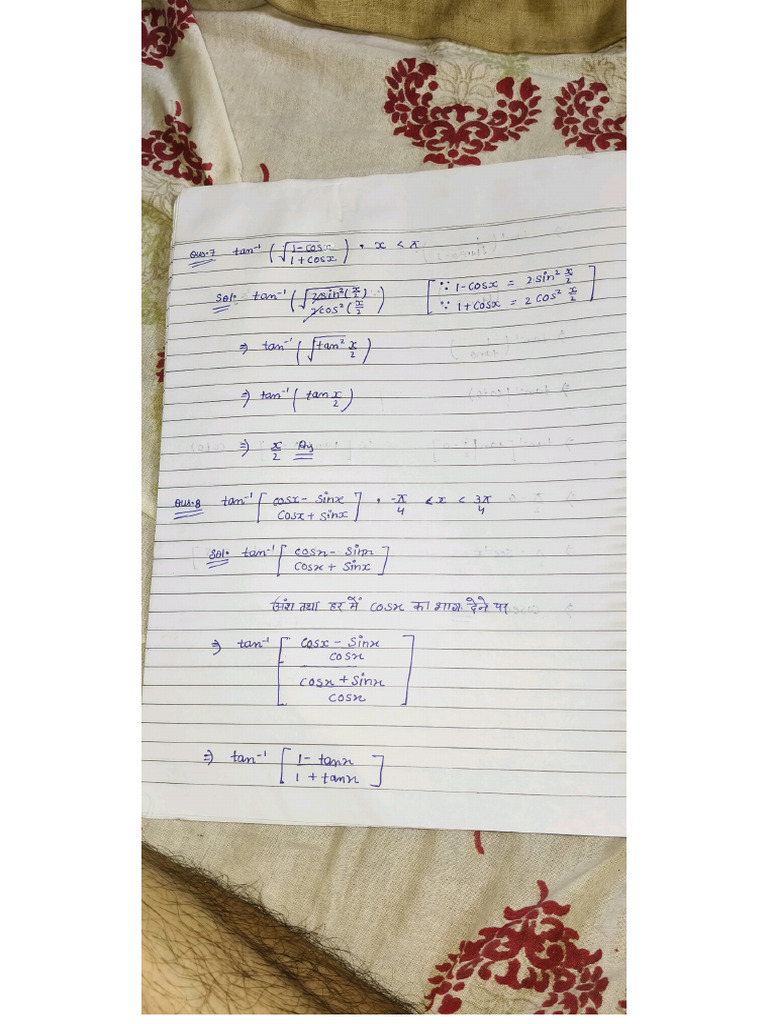 Que.7 tan⁻¹ (√(1-cosx / 1+cosx)) • x < π
Sol. tan⁻¹ (√(2sin²(x/2) / 2cos²(x/2))) [∵ 1-cosx = 2sin² x/2
∵ 1+cosx = 2cos² x/2]
⇒ tan⁻¹ (√tan² x/2)
⇒ tan⁻¹ (tan x/2)
⇒ x/2 Ans
Que.8 tan⁻¹ [cosx - sinx / cosx + sinx] • -π/4 < x < 3π/4
Sol. tan⁻¹ [cosx - sinx / cosx + sinx]
अंश तथा हर में cosx का भाग देने पर
⇒ tan⁻¹ [(cosx - sinx / cosx) / (cosx + sinx / cosx)]
⇒ tan⁻¹ [1 - tanx / 1 + tanx]